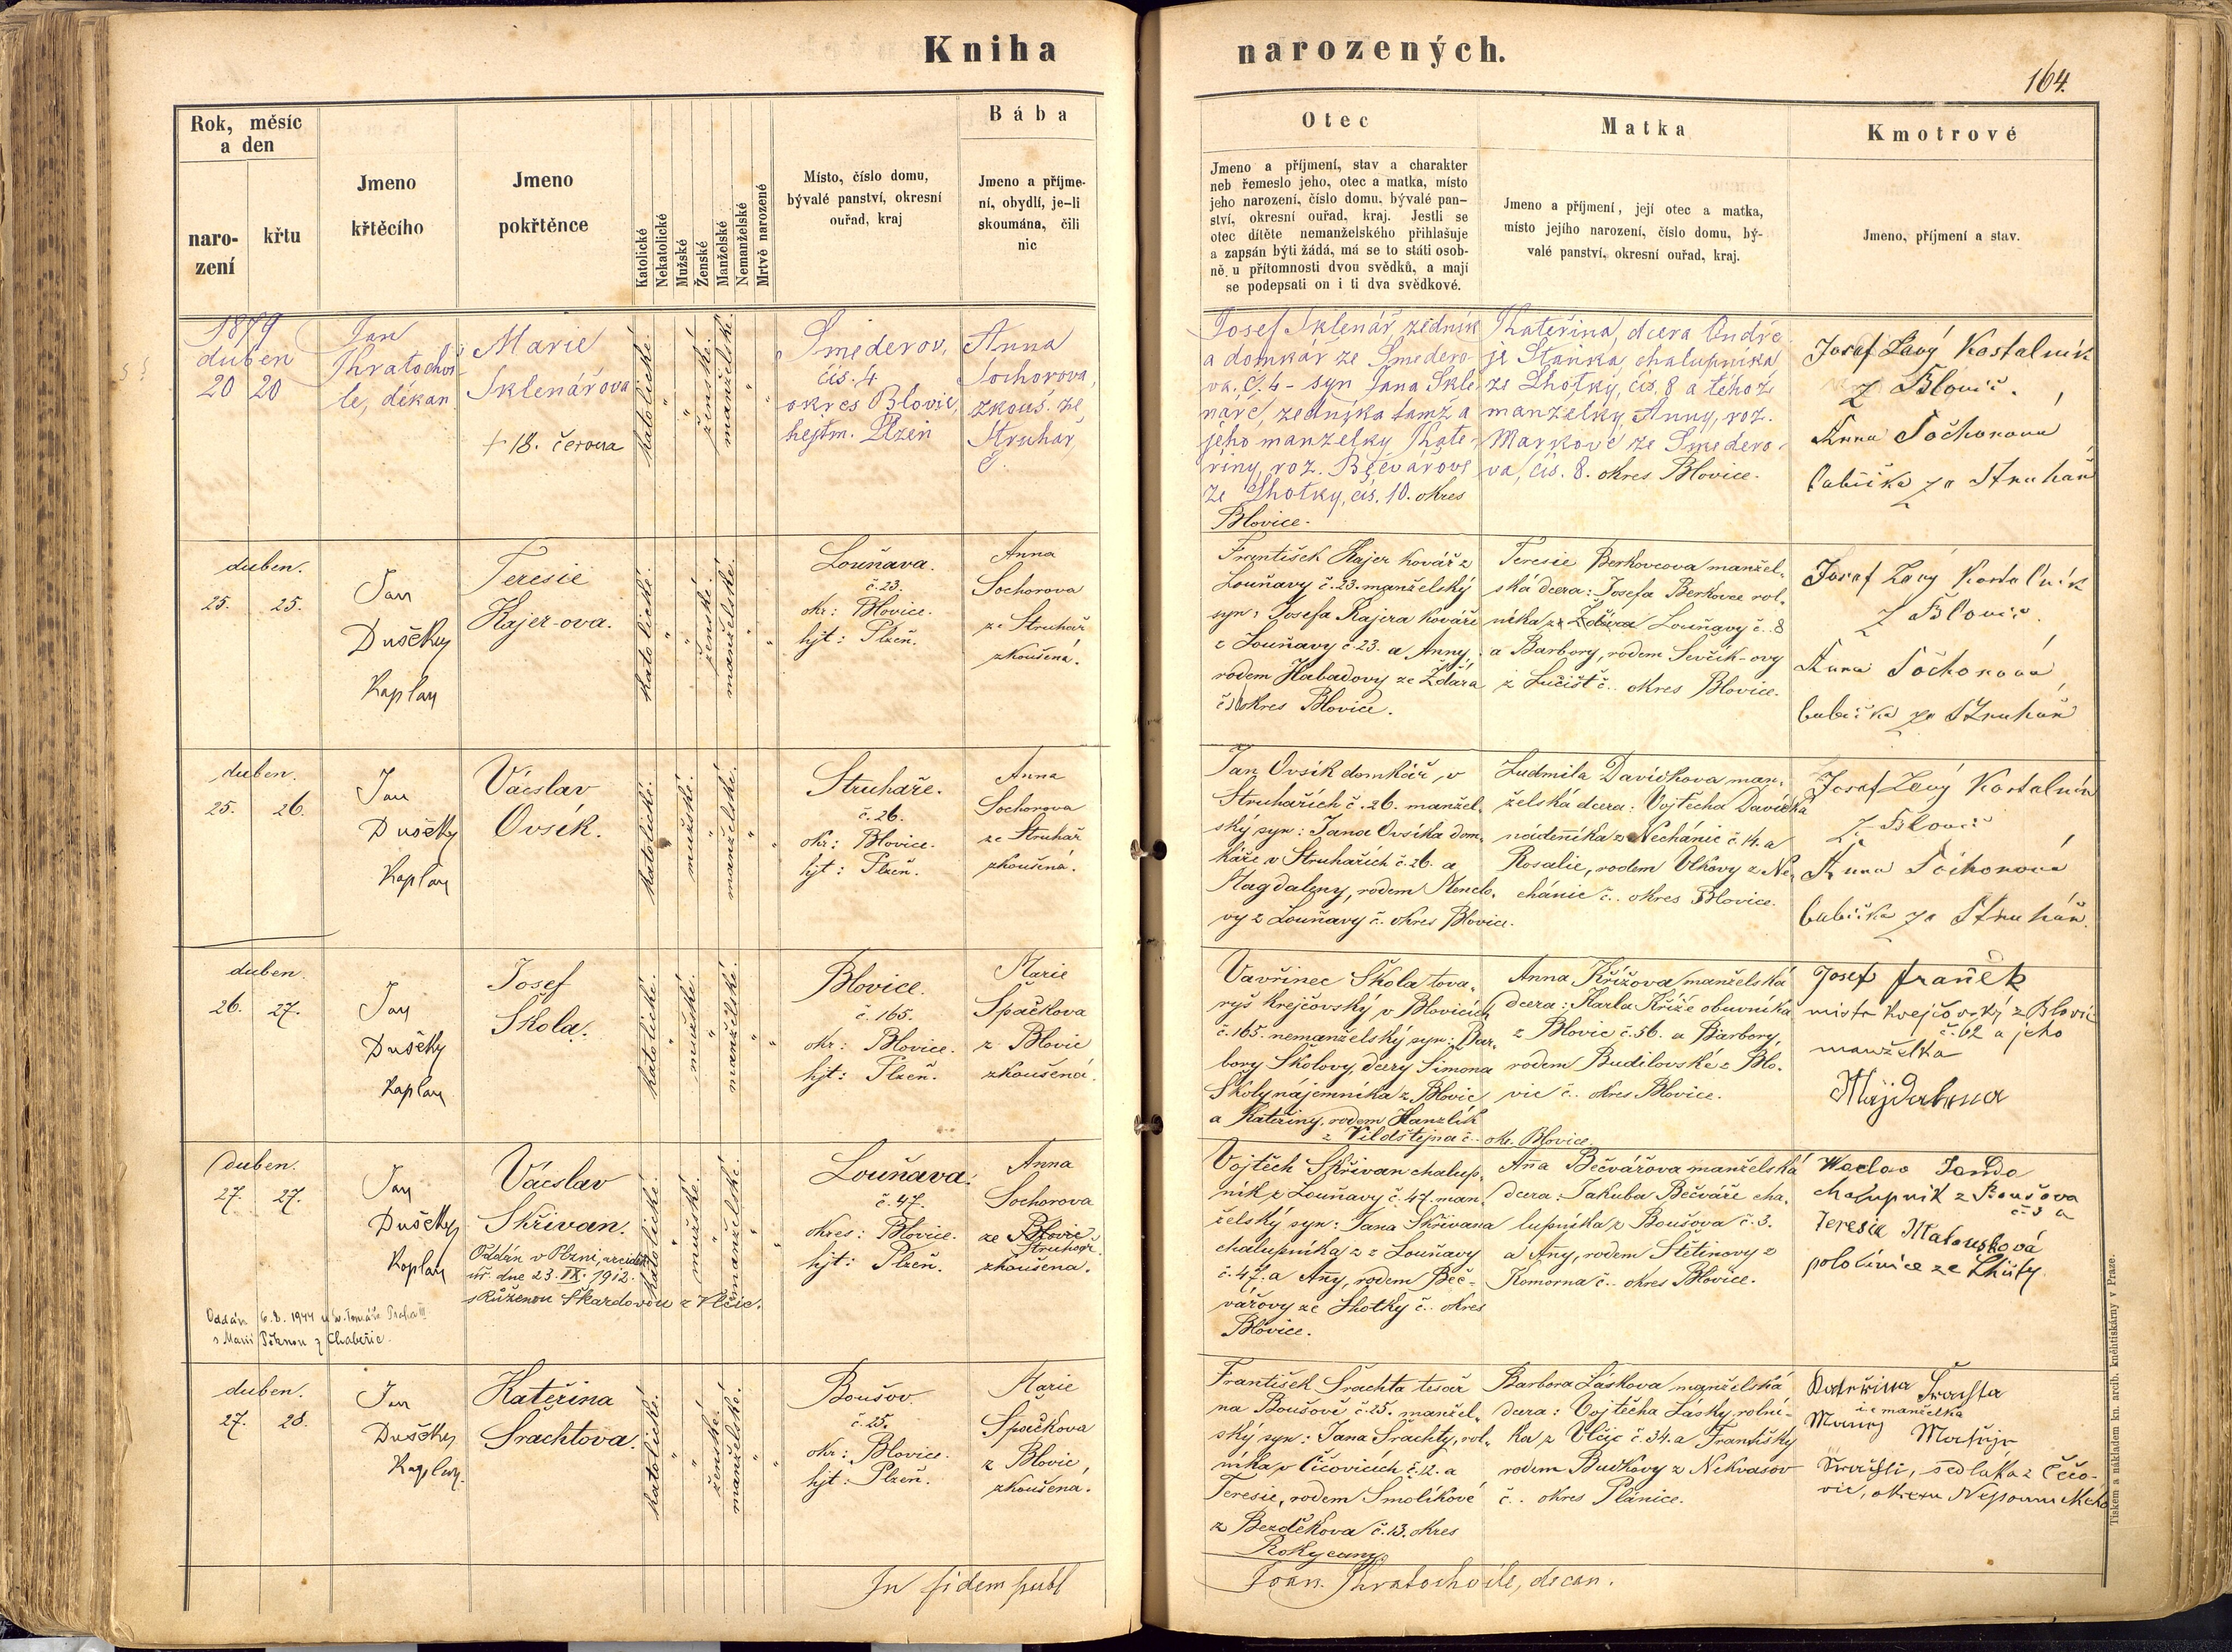 Kniha
narozených.
164.
Rok, měsíc
a den
naro-
zení
křtu
Jmeno
křtěcího
Jmeno
pokřtěnce
Katolické
Nekatolické
Mužské
Ženské
Manželské
Nemanželské
Mrtvě narozené
Místo, číslo domu,
bývalé panství, okresní
ouřad, kraj
Bába
Jmeno a příjme-
ní, obydlí, je-li
skoumána, čili
nic
Otec
Jmeno a příjmení, stav a charakter
neb řemeslo jeho, otec a matka, místo
jeho narození, číslo domu, bývalé pan-
ství, okresní ouřad, kraj. Jestli se
otec dítěte nemanželského přihlašuje
a zapsán býti žádá, má se to státi osob-
ně u přítomnosti dvou svědků, a mají
se podepsati on i ti dva svědkové.
Matka
Jmeno a příjmení, její otec a matka,
místo jejího narození, číslo domu, bý-
valé panství, okresní ouřad, kraj.
Kmotrové
Jmeno, příjmení a stav.
1879
duben
20 20
Jan
Kratochví-
le, děkan
Marie
Sklenářova
+ 18. června
katolické
ženské
manželské
Smederov,
čís. 4
okres Blovic,
hejtm. Plzeň
Anna
Sochorova,
zkouš. ze
Struhař
Josef Sklenář zedník
a domkář ze Smedero-
va, č. 4 - syn Jana Skle-
náře, zedníka tamž a
jeho manželky Kate-
řiny, roz. Bečvářove
ze Lhotky, čís. 10. okres
Blovice.
Kateřina, dcera Ondře-
je Staňka, chalupníka
ze Lhotky, čís. 8 a téhož
manželky, Anny, roz.
Markove ze Smedero-
va, čís. 8. okres Blovice.
Josef Lavý Kostalník
z Blovic.
Anna Sochorova
babička ze Struhař
duben.
25. 25.
Jan
Dušeky
Kaplan
Teresie
Kajer-ova.
katolické.
ženské.
manželské.
Louňava.
č. 23.
okr: Blovice.
hjt: Plzeň.
Anna
Sochorova
ze Struhař
zkoušená.
František Kajer kovář z
Louňavy č. 23. manželský
syn: Josefa Kajera kováře
z Louňavy č. 23. a Anny,
rodem Habadovy ze Ždára
č. okres Blovice.
Teresie Berkovcova manžel-
ská dcera: Josefa Berkovce rol-
níka z Louňavy č. 8
a Barbory, rodem Ševčík-ovy
z Lučišť č.. okres Blovice.
Josef Lavý Kostalník
z Blovic.
Anna Sochorová
babička ze Struhař
duben.
25. 26.
Jan
Dušeky
Kaplan
Václav
Ovsík.
katolické.
mužské.
manželské.
Struhaře.
č. 26.
okr: Blovice.
hjt: Plzeň.
Anna
Sochorova
ze Struhař
zkoušená.
Jan Ovsík domkář, v
Struhařích č. 26. manžel-
ský syn: Jana Ovsíka dom-
káře v Struhařích č. 26. a
Magdaleny, rodem Menclo-
vy z Louňavy č. okres Blovice.
Ludmila Davídkova man-
želská dcera: Vojtěcha Davídka
nádeníka z Nechánic č. 14. a
Rosalie, rodem Vlkovy z Ne-
chánic č.. okres Blovice.
Josef Lavý Kostalník
z Blovic
Anna Sochorová
babička ze Struhař.
duben.
26. 27.
Jan
Dušeky
Kaplan
Josef
Škola.
katolické.
mužské.
manželské.
Blovice.
č. 165.
okr: Blovice.
hjt: Plzeň.
Marie
Špačkova
z Blovic
zkoušená.
Vavřinec Škola tova-
ryš krejčovský v Blovicích
č. 165. nemanželský syn: Bar-
bory Školovy, dcery Šimona
Školy nájemníka z Blovic
a Kateřiny, rodem Hanzlík
z Vildštejna č.. okr. Blovice.
Anna Křížova manželská
dcera: Karla Kříže obuvníka
z Blovic č. 56. a Barbory,
rodem Budilovské z Blo-
vic č.. okres Blovice.
Josef Franěk
mistr krejčovský z Blovic
č. 62 a jeho
manželka
Majdalena
duben.
27. 27.
Jan
Dušeky
Kaplan
Václav
Skřivan.
Oddán v Plzni, arciděk.
úř. dne 23. IX. 1912.
s Růženou Škardovou z Vlčic.
Oddán 6.8.1944 u sv. Tomáše Praha III
s Marií Pěknou z Chabeřic.
katolické.
mužské.
manželské.
Louňava.
č. 47.
okres: Blovice.
hjt: Plzeň.
Anna
Sochorova
ze Blovic
Struhař
zkoušena.
Vojtěch Skřivan chalup-
ník z Louňavy č. 47. man-
želský syn: Jana Skřivana
chalupníka z z Louňavy
č. 47. a Any, rodem Beč-
vářovy ze Lhotky č.. okres
Blovice.
Anna Bečvářova manželská
dcera: Jakuba Bečváře cha-
lupníka z Boušova č. 3.
a Any, rodem Štětinovy z
Komorna č.. okres Blovice.
Waclav Janda
chalupník z Boušova
č. 3 a
Teresie Matoušková
polodvice ze Lhůty
duben.
27. 28.
Jan
Dušeky
Kaplan.
Kateřina
Šrachtova.
katolické.
ženské.
manželské.
Boušov.
č. 25.
okr: Blovice.
hjt: Plzeň.
Marie
Špačkova
z Blovic,
zkoušena.
František Šrachta tesař
na Boušově č. 25. manžel-
ský syn: Jana Šrachty, rol-
níka v Čičovicích č. 12. a
Teresie, rodem Smolíkové
z Bezděkova č. 13. okres
Rokycany.
Barbora Láskova manželská
dcera: Vojtěcha Lásky, rolní-
ka z Vlčic č. 34. a Františky
rodem Budkovy z Nekvasov
č.. okres Plánice.
Kateřina Šrachta
manželka
Matěje
Šrachti, sedláka z Čečo-
vic, okresu Nepomuckého
In fidem publ
Joan. Kratochvíle, decan.
Tiskem a nákladem kn. arcib. kněhtiskárny v Praze.